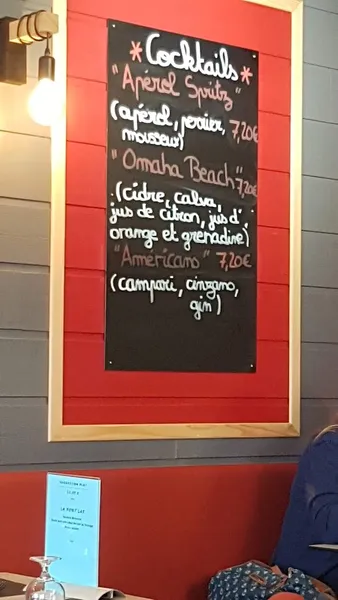 *Cocktails*
"Apérol Spritz"
(apérol, perrier, 7,20€
mousseux)
"Omaha Beach" 7,20€
(cidre, calva,
jus de citron, jus d'
orange et grenadine)
"Américano" 7,20€
(campari, cinzano,
gin)